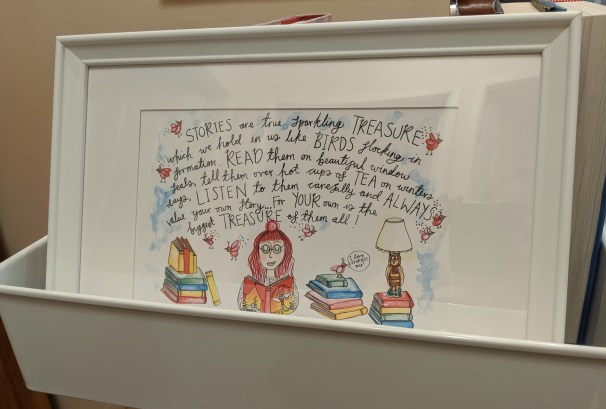 STORIES are true sparkling TREASURE
which we hold in us like BIRDS flocking in
formation. READ them on beautiful window
seats, tell them over hot cups of TEA on winters
days, LISTEN to them carefully and ALWAYS
value your own story. For YOUR own is the
biggest TREASURE of them all!